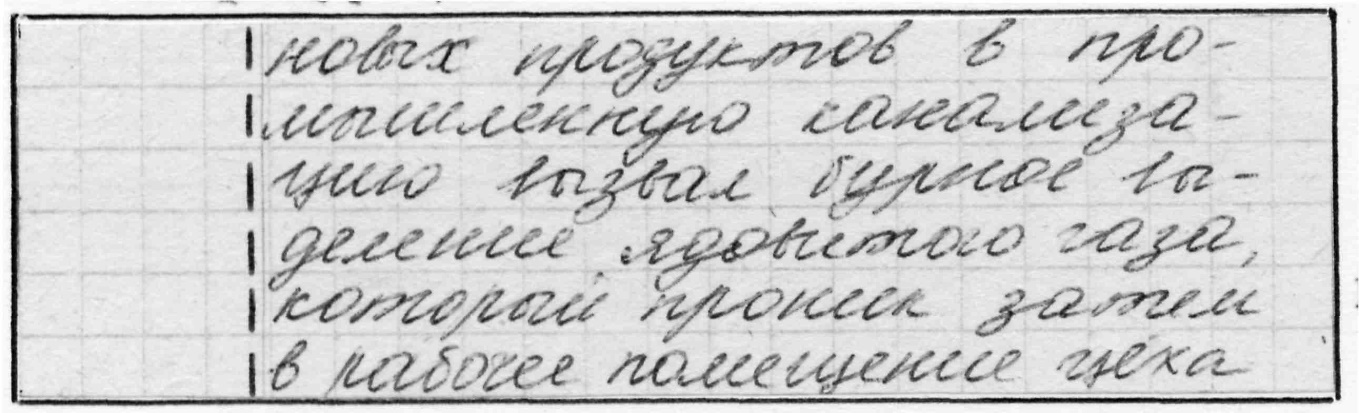 новых продуктов в про-
мышленную канализа-
цию вызвал бурное вы-
деление ядовитого газа,
который проник затем
в рабочее помещение цеха